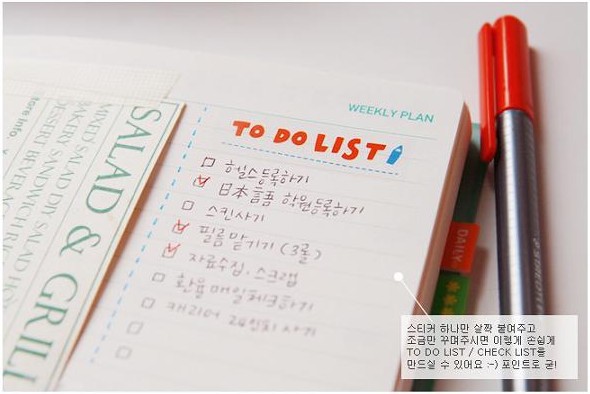 SALAD & GRILL
WEEKLY PLAN
TO DO LIST
헬스등록하기
日本言語 학원등록하기
스킨사기
필름맡기기 (3롤)
자료수집. 스크랩
환율 매일체크하기
캐리어 24인치 사기
DAILY
스티커 하나만 살짝 붙여주고
조금만 꾸며주시면 이렇게 손쉽게
TO DO LIST / CHECK LIST를
만드실 수 있어요 :-) 포인트로 굳!